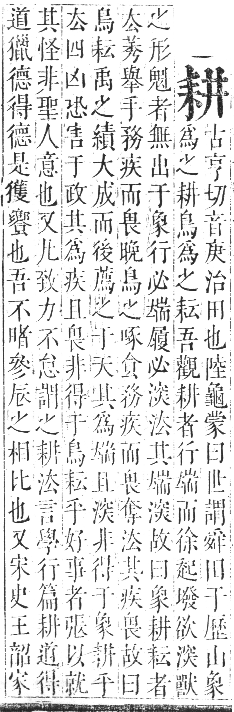 耕
古亨切音庚治田也陸龜蒙曰世謂舜田于歷山象
爲之耕鳥爲之耘吾觀耕者行端而徐起墢欲深獸
之形魁者無出于象行必端履必深法其端深故曰象耕耘者
去莠舉手務疾而畏晚鳥之啄食務疾而畏奪法其疾畏故曰
鳥耘禹之績大成而後薦之于天其爲端且深非得于象耕乎
去四凶恐害于政其爲疾且畏非得于鳥耘乎好事者張以就
其怪非聖人意也又凡致力不怠謂之耕法言學行篇耕道得
道獵德得德是獲饗也吾不睹參辰之相比也又宋史王韶家